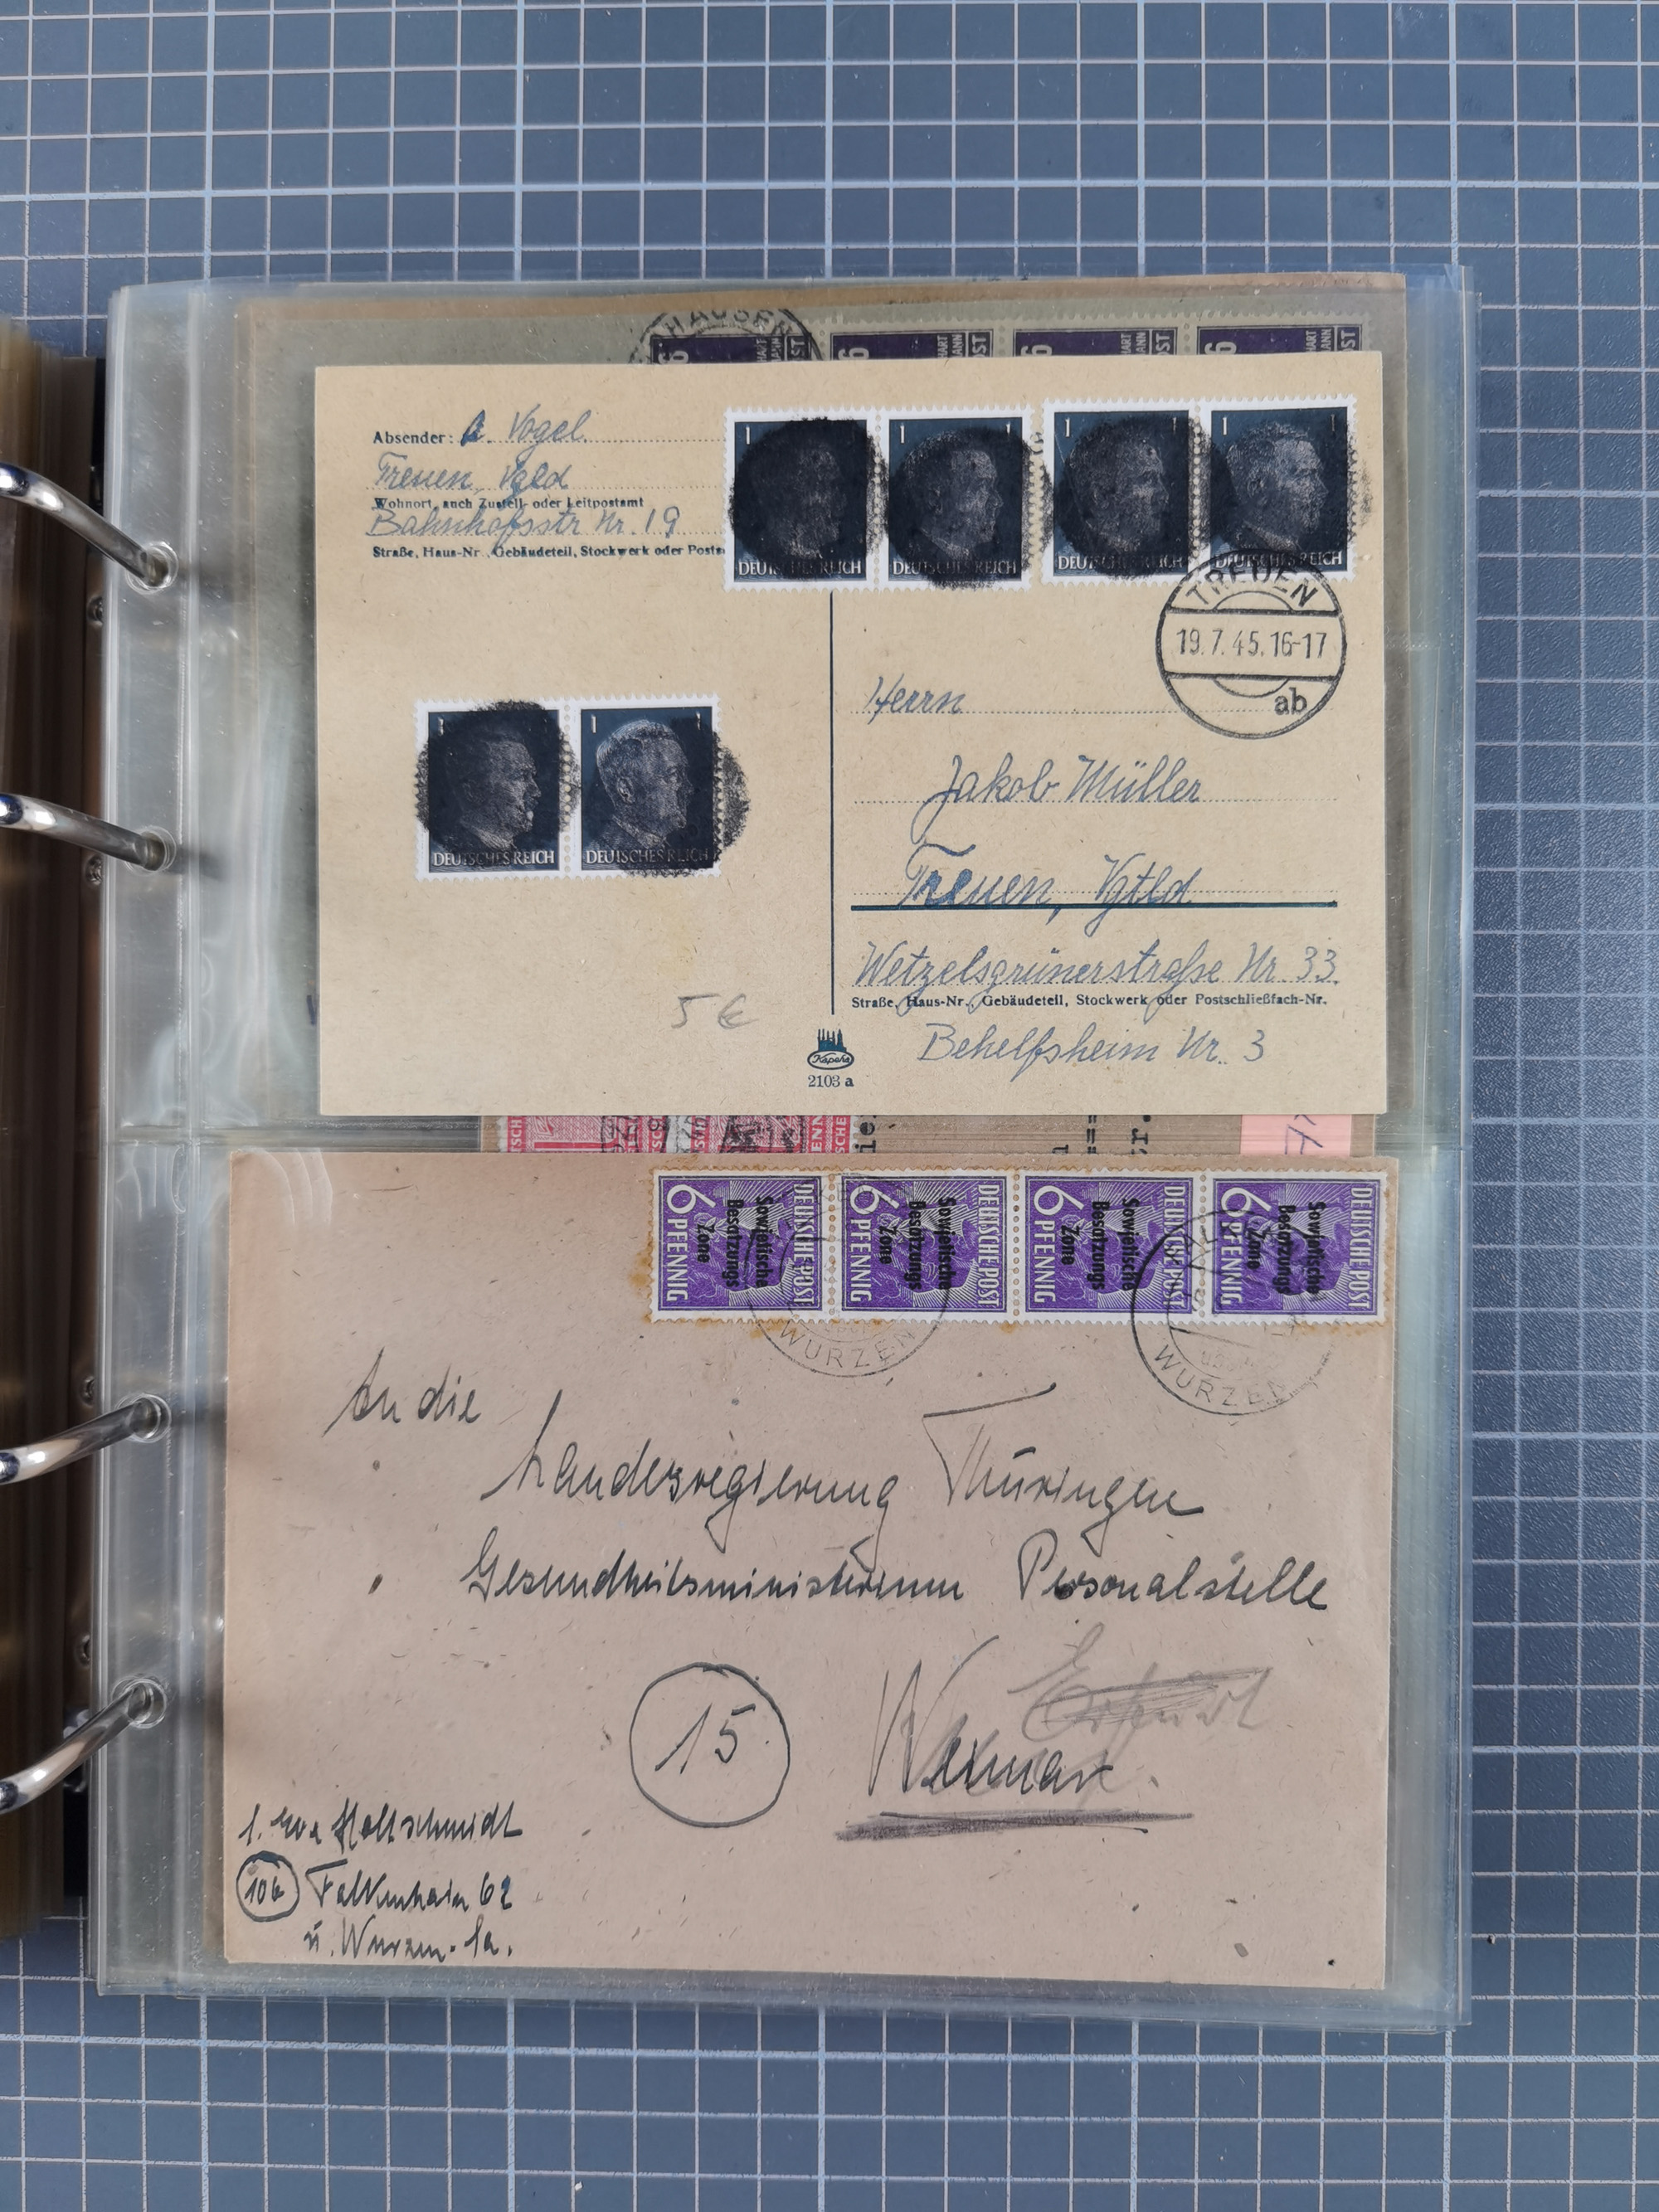 HAUSEN
6 6 6
Absender: A. Vogel
Treuen, Vgld
Wohnort, auch Zustell- oder Leitpostamt
Bahnhofsstr Nr. 19
Straße, Haus-Nr., Gebäudeteil, Stockwerk oder Posts
1 1 1 1
DEUTSCHES REICH DEUTSCHES REICH DEUTSCHES REICH DEUTSCHES REICH
TREUEN
19.7.45.16-17
ab
1 1
DEUTSCHES REICH DEUTSCHES REICH
Herrn
Jakob Müller
Treuen, Vgtld
Wetzelsgrünerstraße Nr. 33.
Straße, Haus-Nr., Gebäudeteil, Stockwerk oder Postschließfach-Nr.
Behelfsheim Nr. 3
5 €
2103 a
DEUTSCHE POST DEUTSCHE POST DEUTSCHE POST DEUTSCHE POST
Sowjetische Besatzungs Zone Sowjetische Besatzungs Zone Sowjetische Besatzungs Zone Sowjetische Besatzungs Zone
6 PFENNIG 6 PFENNIG 6 PFENNIG 6 PFENNIG
WURZEN WURZEN
An die
Landesregierung Thüringen
Gesundheitsministerium Personalstelle
Erfurt
15 Weimar.
Holtschmidt
10b Falkenhain 62
ü. Wurzen. Sa.